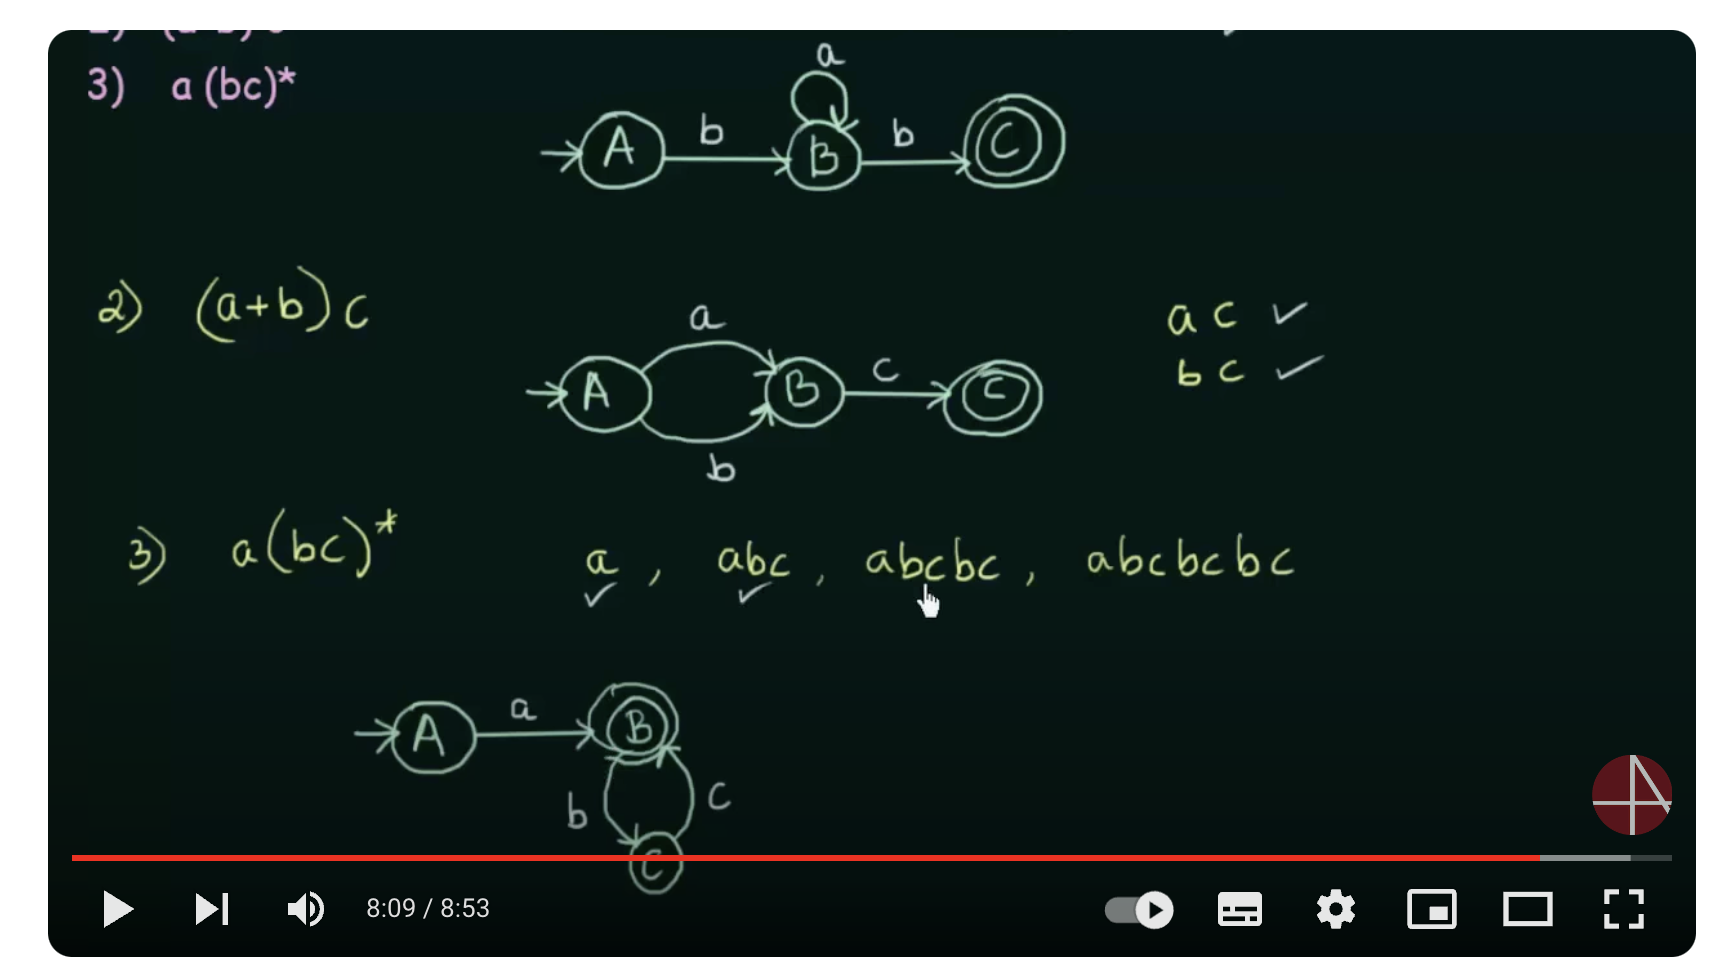 3) a (bc)*
a
A b B b C
2) (a+b) c
a
a c ✓
A B c C
b c ✓
b
3) a(bc)* a , abc , abcbc , abcbcbc
✓ ✓
A a B
b c
C
8:09 / 8:53